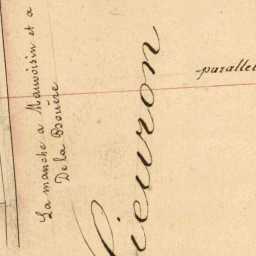 La manche a Mauvoisin et a
De la Bouëre
ieuron
parallel